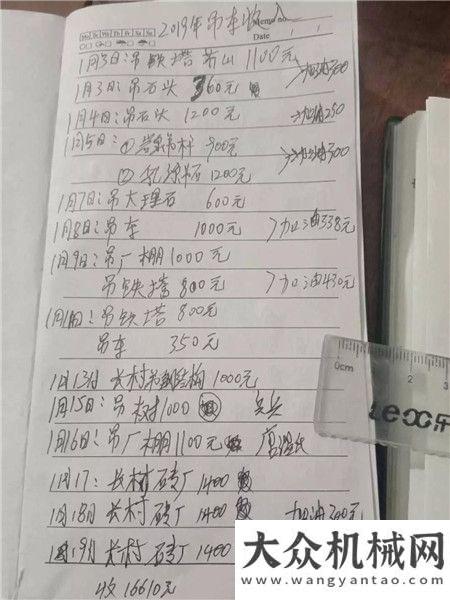 2019年吊车收入
Memo no.
Mo Tu We Th Fr Sa Su
Date / /
1月3日:吊铁塔 1100元 加油300
1月3日:吊石头 360元
1月4日:吊石头 1200元 加油250
1月5日:① 900元 加油300
② 1200元
1月7日:吊大理石 600元
1月8日:吊车 1000元 加油338元
1月9日:吊厂棚 1000元
吊铁塔 800元 加油430元
吊铁塔 800元
吊车 350元
1月13日 长村 结构 1000元
1月15日:吊树 1000
1月16日:吊厂棚 1100元
1月17: 长村砖厂 1400
1月18日 长村砖厂 1400 加油300元
1月19日 长村砖厂 1400
收 16610元
0cm 2 3
大众机械网
www.wangyantao.com